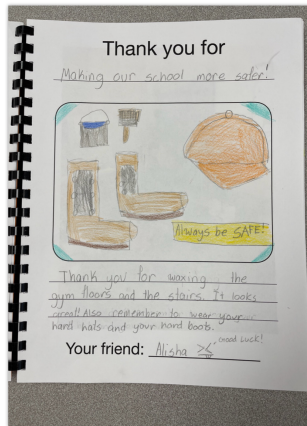 Thank you for
Making our school more safer!
Always be SAFE!
Thank you for waxing the
gym floors and the stairs. It looks
great! Also remember to wear your
hard hats and your hard boots.
Good Luck!
Your friend: Alisha